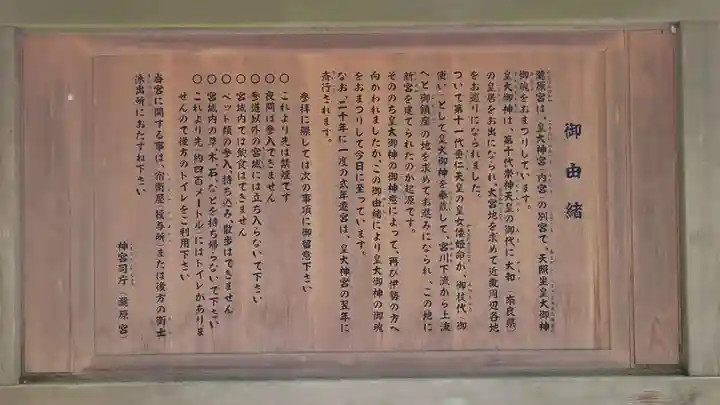 御由緒
瀧原宮は、皇大神宮(内宮)の別宮で、天照坐皇大御神
御魂をおまつりしています。
皇大御神は、第十代崇神天皇の御代に大和(奈良県)
の皇居をお出になられ大宮地を求めて近畿周辺各地
をお巡りになられました。
ついで第十一代垂仁天皇の皇女倭姫命が、御杖代(御
使い)として皇大御神を奉戴して、宮川下流から上流
へと御鎮座の地を求めてお進みになられ、この地に
新宮を建てられたのが起源です。
そののち皇大御神の御神意によって、再び伊勢の方へ
向かわれましたが、この御由緒により皇大御神の御魂
をおまつりして今日に至っています。
なお、二十年に一度の式年遷宮は、皇大神宮の翌年に
斎行されます。
参拝に際しては次の事項に御留意下さい
○これより先は禁煙です
○夜間は参入できません
○参道以外の宮域には立ち入らないで下さい
○宮域内では飲食はできません
○ペット類の参入、持ち込み、散歩はできません
○宮域内の草、木、石、などを持ち帰らないで下さい
○これより先(約四百メートル)にはトイレがありま
せんので後方のトイレをご利用下さい
当宮に関する事は、宿衛屋(授与所)または後方の衛士
派出所におたずね下さい
神宮司庁(瀧原宮)